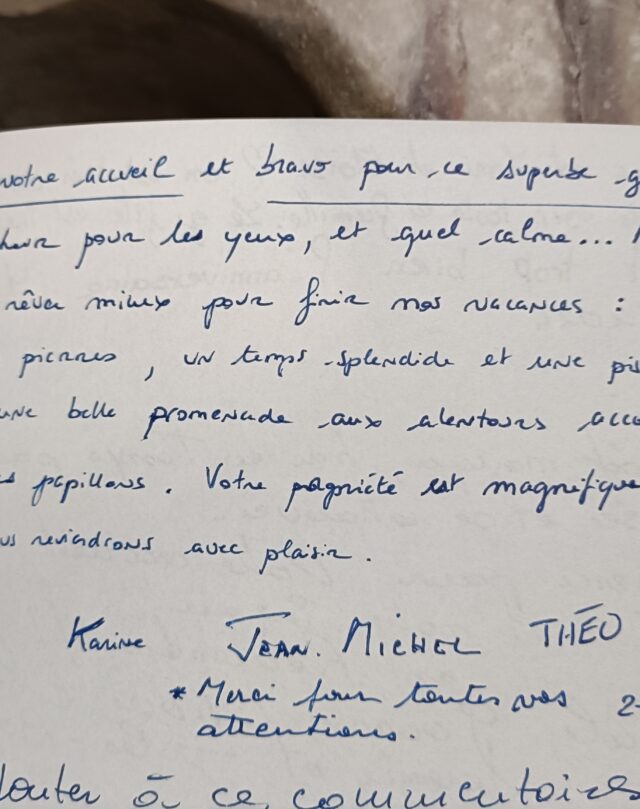 votre accueil et bravo pour ce superbe g
heur pour les yeux, et quel calme...
rêver mieux pour finir nos vacances :
pierres, un temps splendide et une pis
une belle promenade aux alentours acco
s papillons. Votre propriété est magnifique
us reviendrons avec plaisir.
Karine JEAN. MICHEL THÉO
* Merci pour toutes vos 2-
attentions.
jouter à ce commentaire